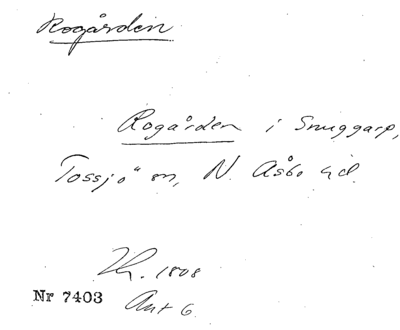 Rogården
Rogården i Snuggarp,
Tossjö sn, N. Åsbo hd.
1808
Nr 7403
Ant 6